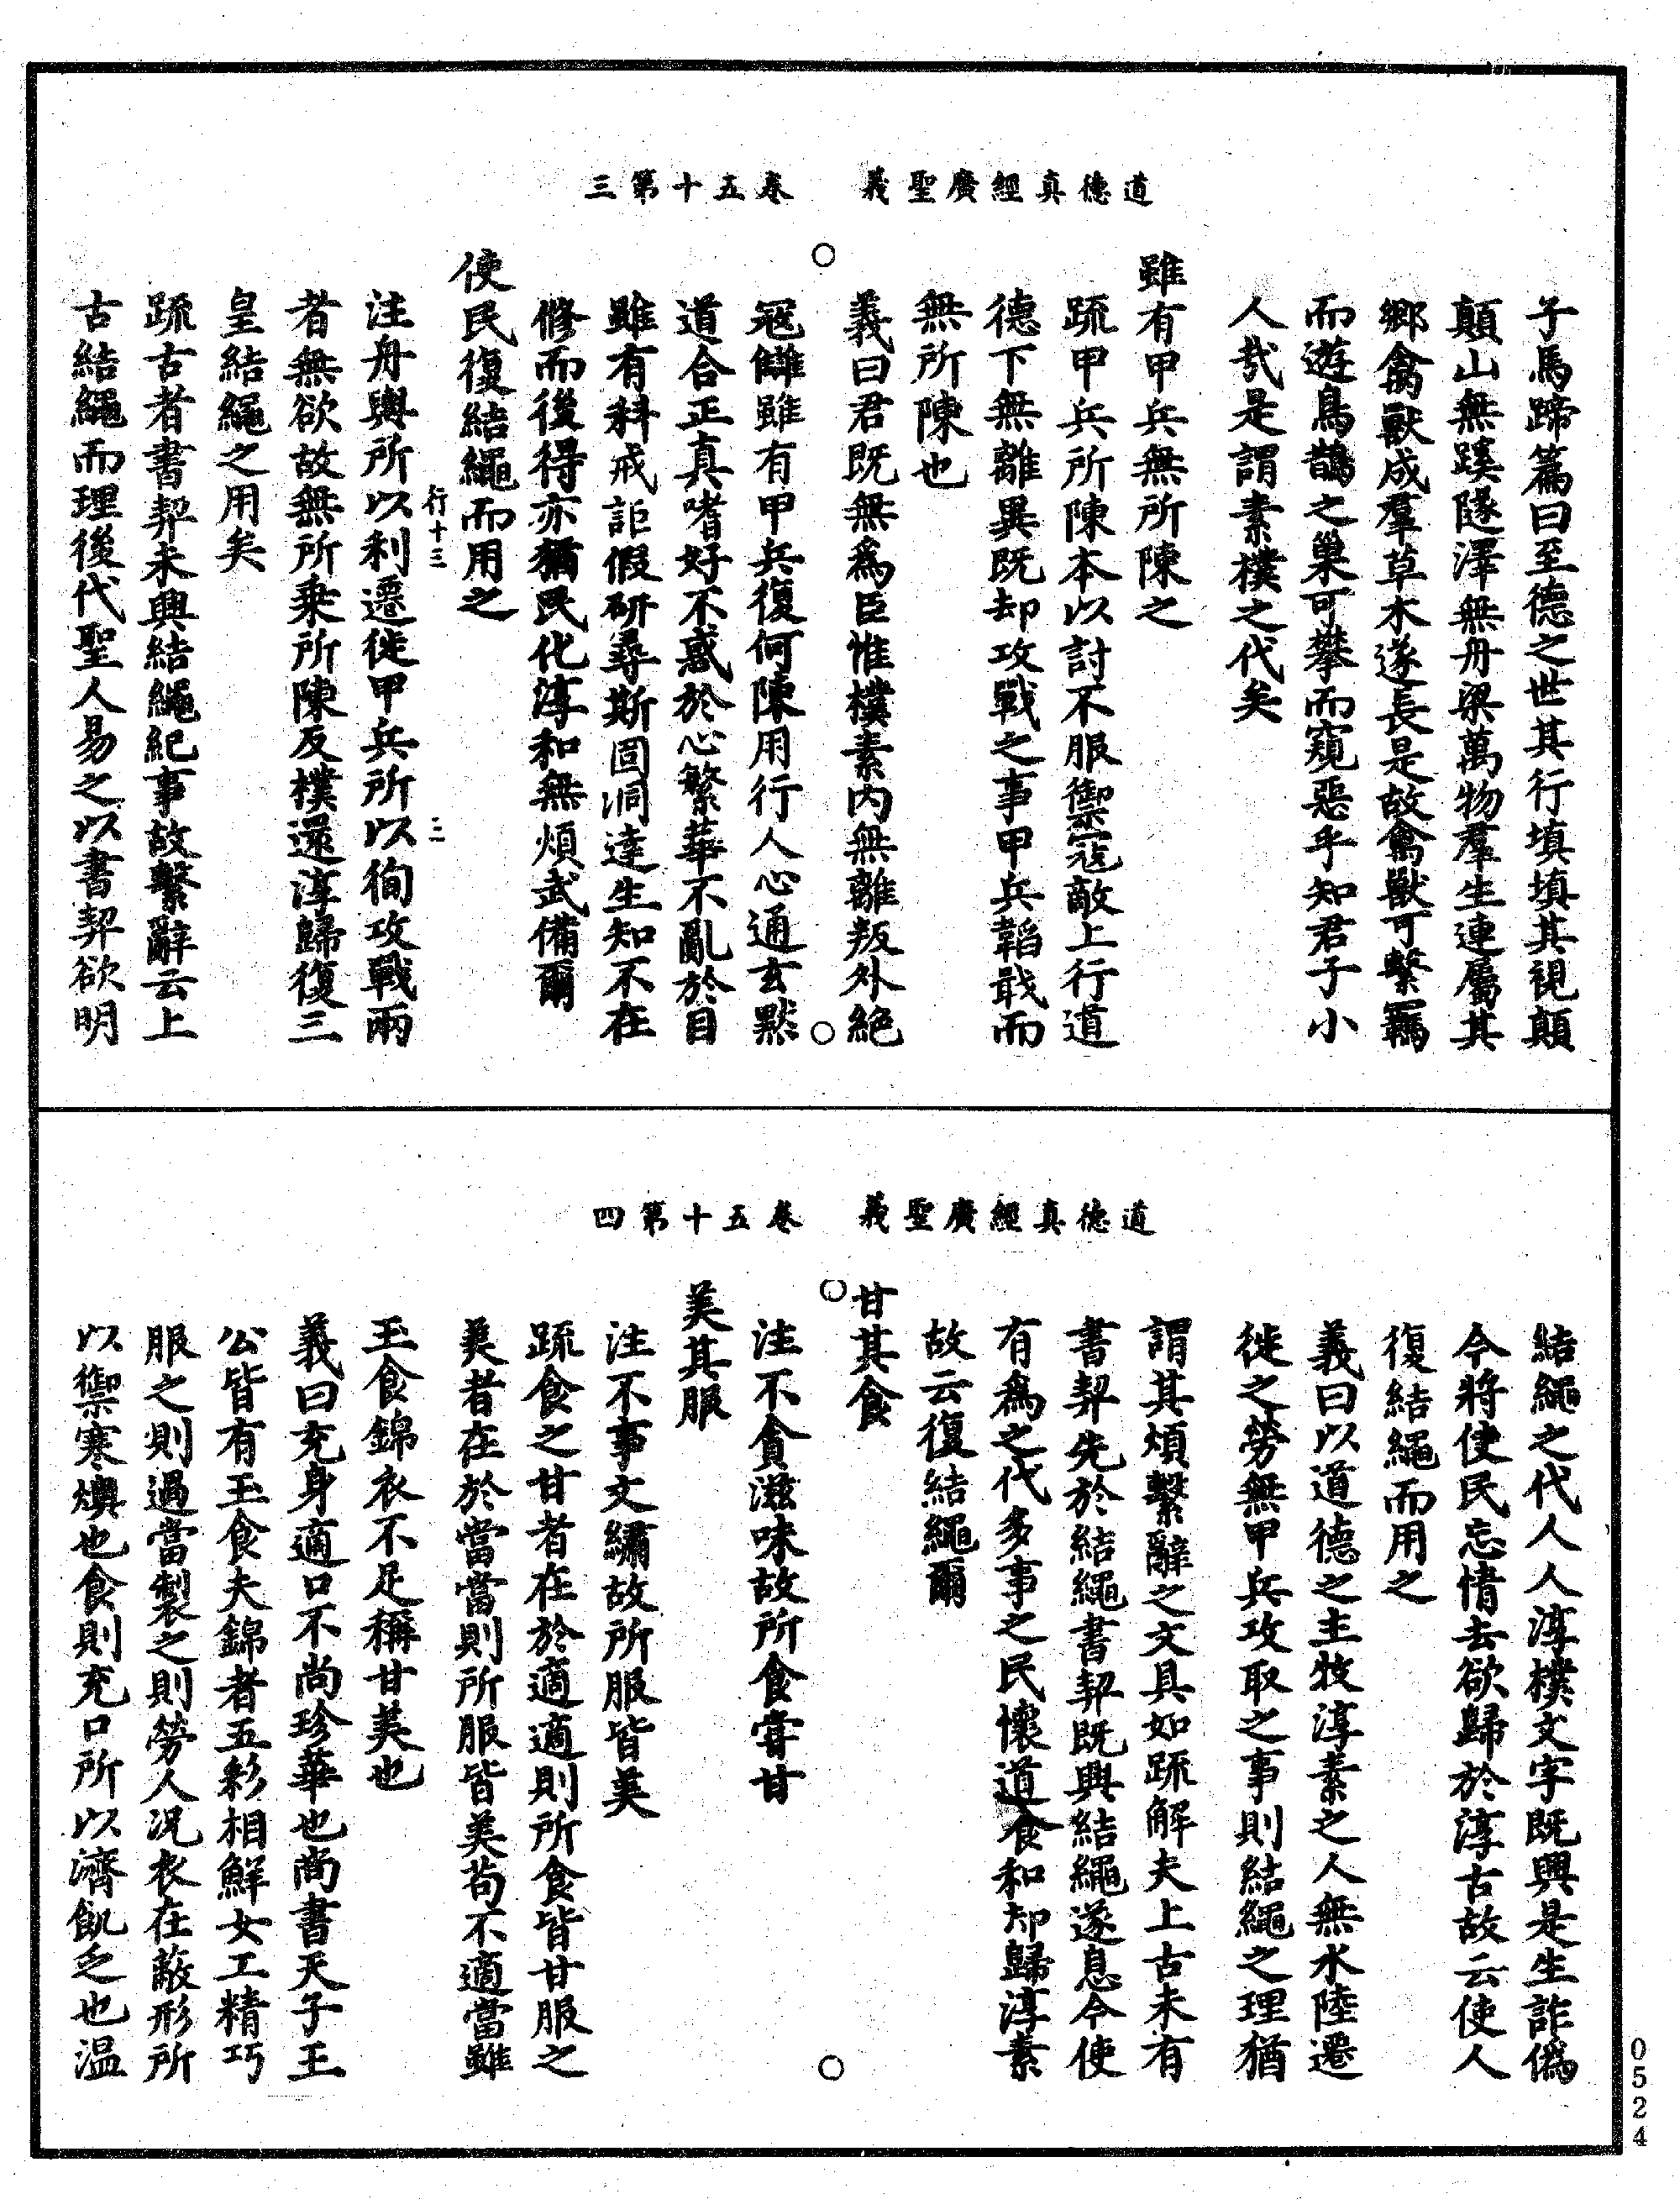 道德真經廣聖義　卷五十第三
子馬蹄篇曰至德之世其行填填其視顛
顛山無蹊隧澤無舟梁萬物羣生連屬其
鄉禽獸成羣草木遂長是故禽獸可繫羈
而遊鳥鵲之巢可攀而窺惡乎知君子小
人哉是謂素樸之代矣
雖有甲兵無所陳之
疏甲兵所陳本以討不服禦寇敵上行道
德下無離異既却攻戰之事甲兵韜戢而
無所陳也
義曰君既無為臣惟樸素內無離叛外絕
冦讎雖有甲兵復何陳用行人心通玄默
道合正真嗜好不惑於心繁華不亂於目
雖有科戒詎假研尋斯固洞達生知不在
修而後得亦猶民化淳和無煩武備爾
使民復結繩而用之
注舟輿所以利遷徙甲兵所以徇攻戰兩
行十三
三
者無欲故無所乘所陳反樸還淳歸復三
皇結繩之用矣
疏古者書契未興結繩紀事故繫辭云上
古結繩而理後代聖人易之以書契欲明
道德真經廣聖義　卷五十第四
結繩之代人人淳樸文字既興是生詐偽
今將使民忘情去欲歸於淳古故云使人
復結繩而用之
義曰以道德之主牧淳素之人無水陸遷
徙之勞無甲兵攻取之事則結繩之理猶
謂其煩繫辭之文具如疏解夫上古未有
書契先於結繩書契既興結繩遂息今使
有為之代多事之民懷道食和却歸淳素
故云復結繩爾
甘其食
注不貪滋味故所食常甘
美其服
注不事文繡故所服皆美
疏食之甘者在於適適則所食皆甘服之
美者在於當當則所服皆美苟不適當雖
玉食錦衣不足稱甘美也
義曰充身適口不尚珍華也尚書天子王
公皆有玉食夫錦者五彩相鮮女工精巧
服之則過當製之則勞人況衣在蔽形所
以禦寒燠也食則充口所以濟飢乏也温
0524